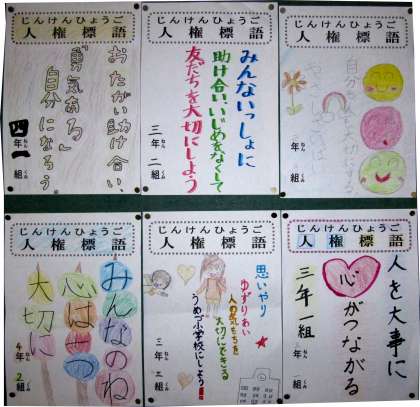 じんけんひょうご
人権標語
おたがい助け合い
「勇気ある」
自分になろう
四年一組
じんけんひょうご
人権標語
みんないっしょに
助け合い、いじめをなくして
友だちを大切にしよう
三年二組
じんけんひょうご
人権標語
自分
やさしい
年組
じんけんひょうご
人権標語
みんなのね
心は一つ
大切に
4年2組
じんけんひょうご
人権標語
思いやり
ゆずりあい
人の気もちを
大切にできる
うめご小学校にしよう!
二年三組
じんけんひょうご
人権標語
人を大事に
心がつながる
三年一組